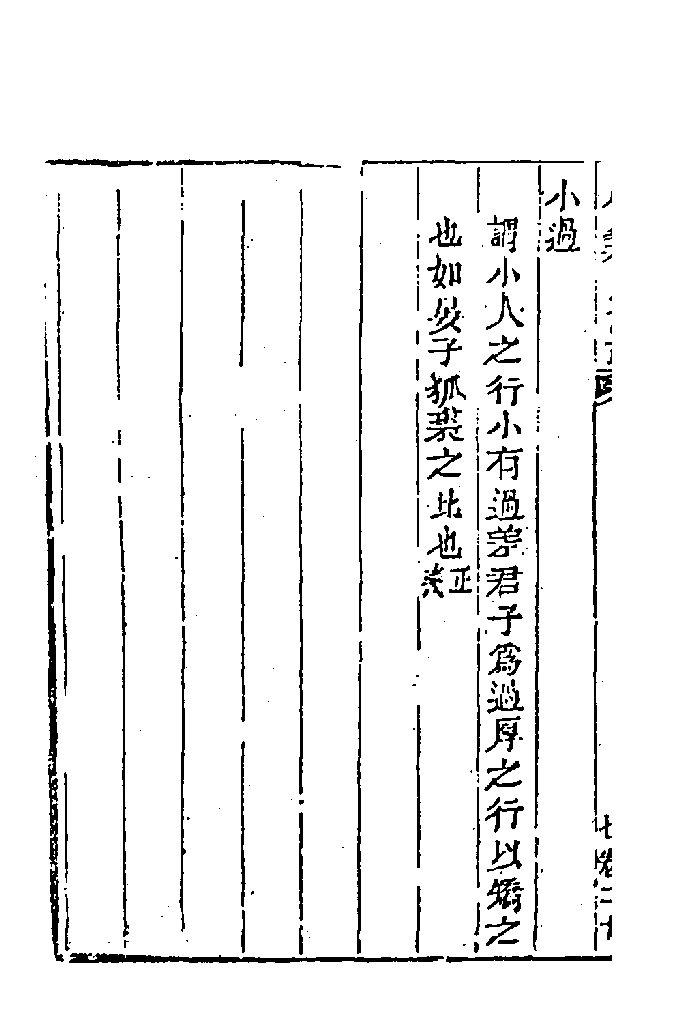 小過
謂小人之行小有過差君子爲過厚之行以矯之
也如晏子狐裘之比也正蒙